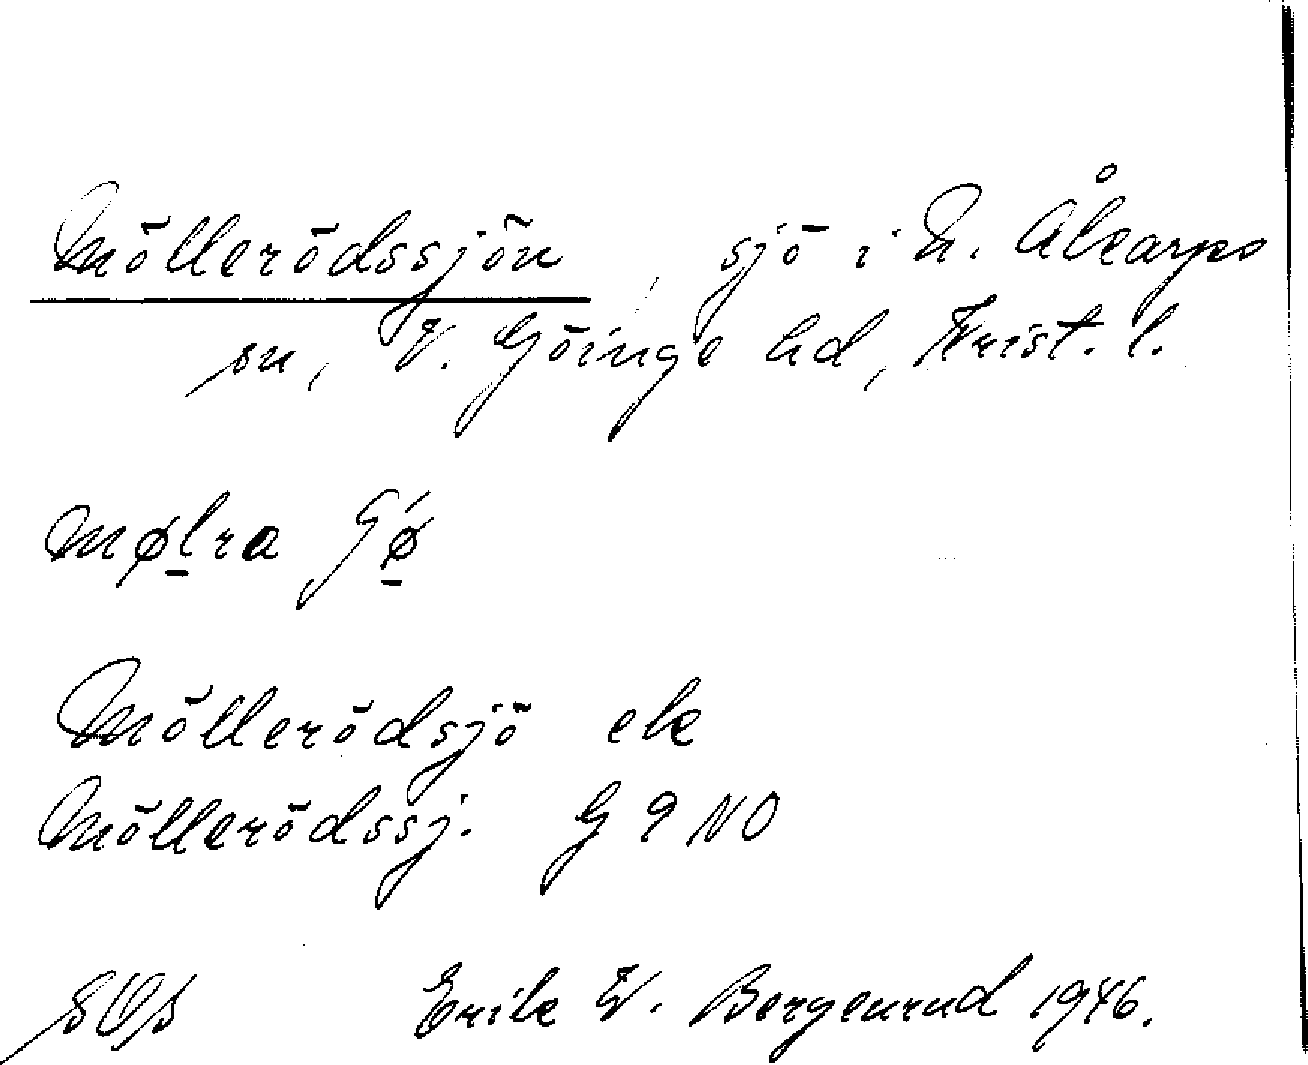 Möllerödssjön, sjö i N. Åkarps
sn, V. Göinge hd, Krist. l.
mølra
Möllerödsjö ek
Möllerödssj. G 9 NO
Erik W. Bergenrud 1946.